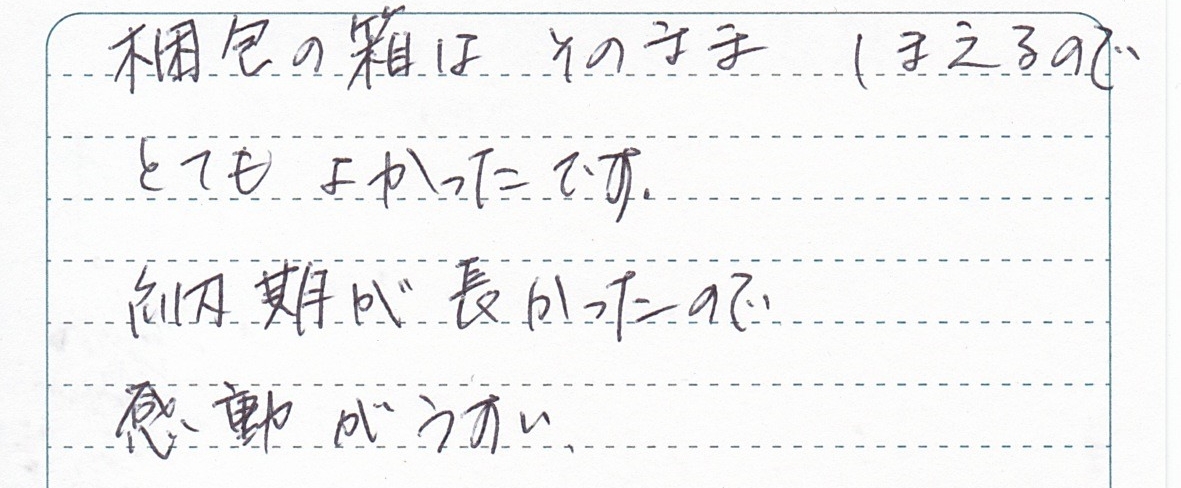 梱包の箱は そのまま しまえるので
とても よかったです.
納期が 長かったので
感動 がうすい.